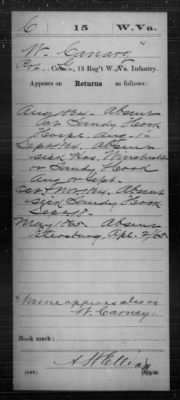 C 15 W.Va.
W. Canary
Co. , 15 Reg't W. Va. Infantry.
Appears on Returns as follows:
Aug 1864. Absent
Sandy Hook
Hosp. Aug.
Sept 1864. Absent
sick Hos. Winchester
or Sandy Hook
Aug or Sept.
Oct & Nov 1864. Absent
sick Sandy Hook
Sept
May 1865. Absent
Petersburg Apl. 2/65
Name appears also as
W. Carney.
Book mark:
(546) Copyist.